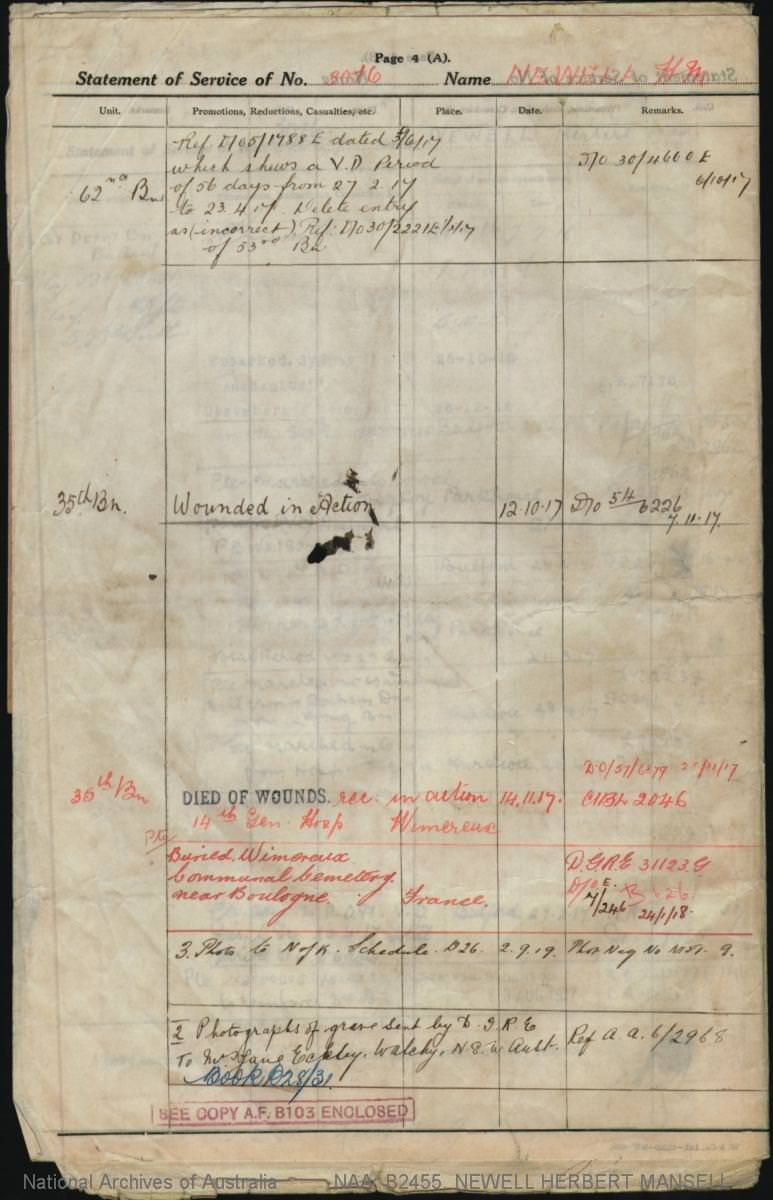 Page 4 (A).
Statement of Service of No. Name NEWELL H M
Unit. Promotions, Reductions, Casualties, etc. Place. Date. Remarks.
62nd Bn
Ref D/O 5/1788 E dated /6/17
which shews a V.D. Period
of 56 days from 27 2 17
to 23.4.17. Delete entry
as (incorrect) Ref: D/O 30/2221E
of 53rd Bn
D/O 30/4660 E
6/10/17
35th Bn. Wounded in Action 12.10.17 D/O 54/6226
7.11.17.
35th Bn DIED OF WOUNDS. rec. in action 14.11.17.
14th Gen. Hosp Wimereux
CIBL 2046
Buried, Wimereux
Communal Cemetery.
near Boulogne. France.
D.G.R.E 31123.G
D/O E.
7/246
24/1/18.
3. Photo to N of K. Schedule. D26. 2.9.19. Phot Neg No 9.
2 Photographs of grave sent by D.G.R.E
To Mrs Jane Eckley, Walcha, N.S.W Aust. Ref A A. 6/2968
Book B28/31.
SEE COPY A.F. B103 ENCLOSED
National Archives of Australia NAA: B2455, NEWELL HERBERT MANSELL